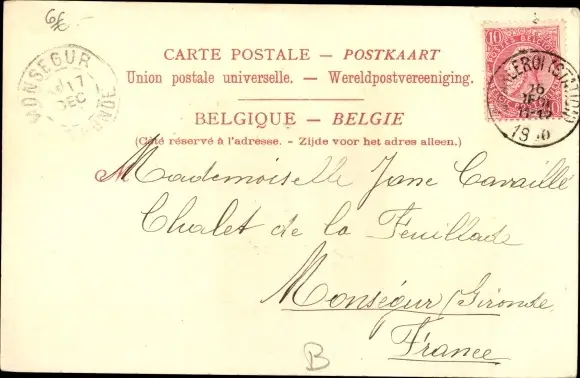 6f
CARTE POSTALE — POSTKAART
Union postale universelle. — Wereldpostvereeniging.
BELGIQUE — BELGIE
(Côté réservé à l'adresse. - Zijde voor het adres alleen.)
MONSEGUR
17
DEC
10
LEROI (STATION)
16
1900
Mademoiselle Jane Cavaillé
Chalet de la Feuillade
Monségur (Gironde)
France
B